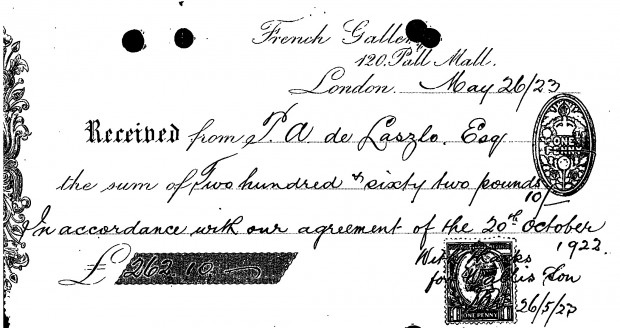 French Gallery
120. Pall Mall.
London. May 26/23
Received from P. A de Laszlo. Esq
ONE PENNY
the sum of Two hundred & sixty two pounds
10/-
In accordance with our agreement of the 20th October
1922.
£ 262.10.-
With thanks
for Wallis & Son
ONE PENNY
26/5/23